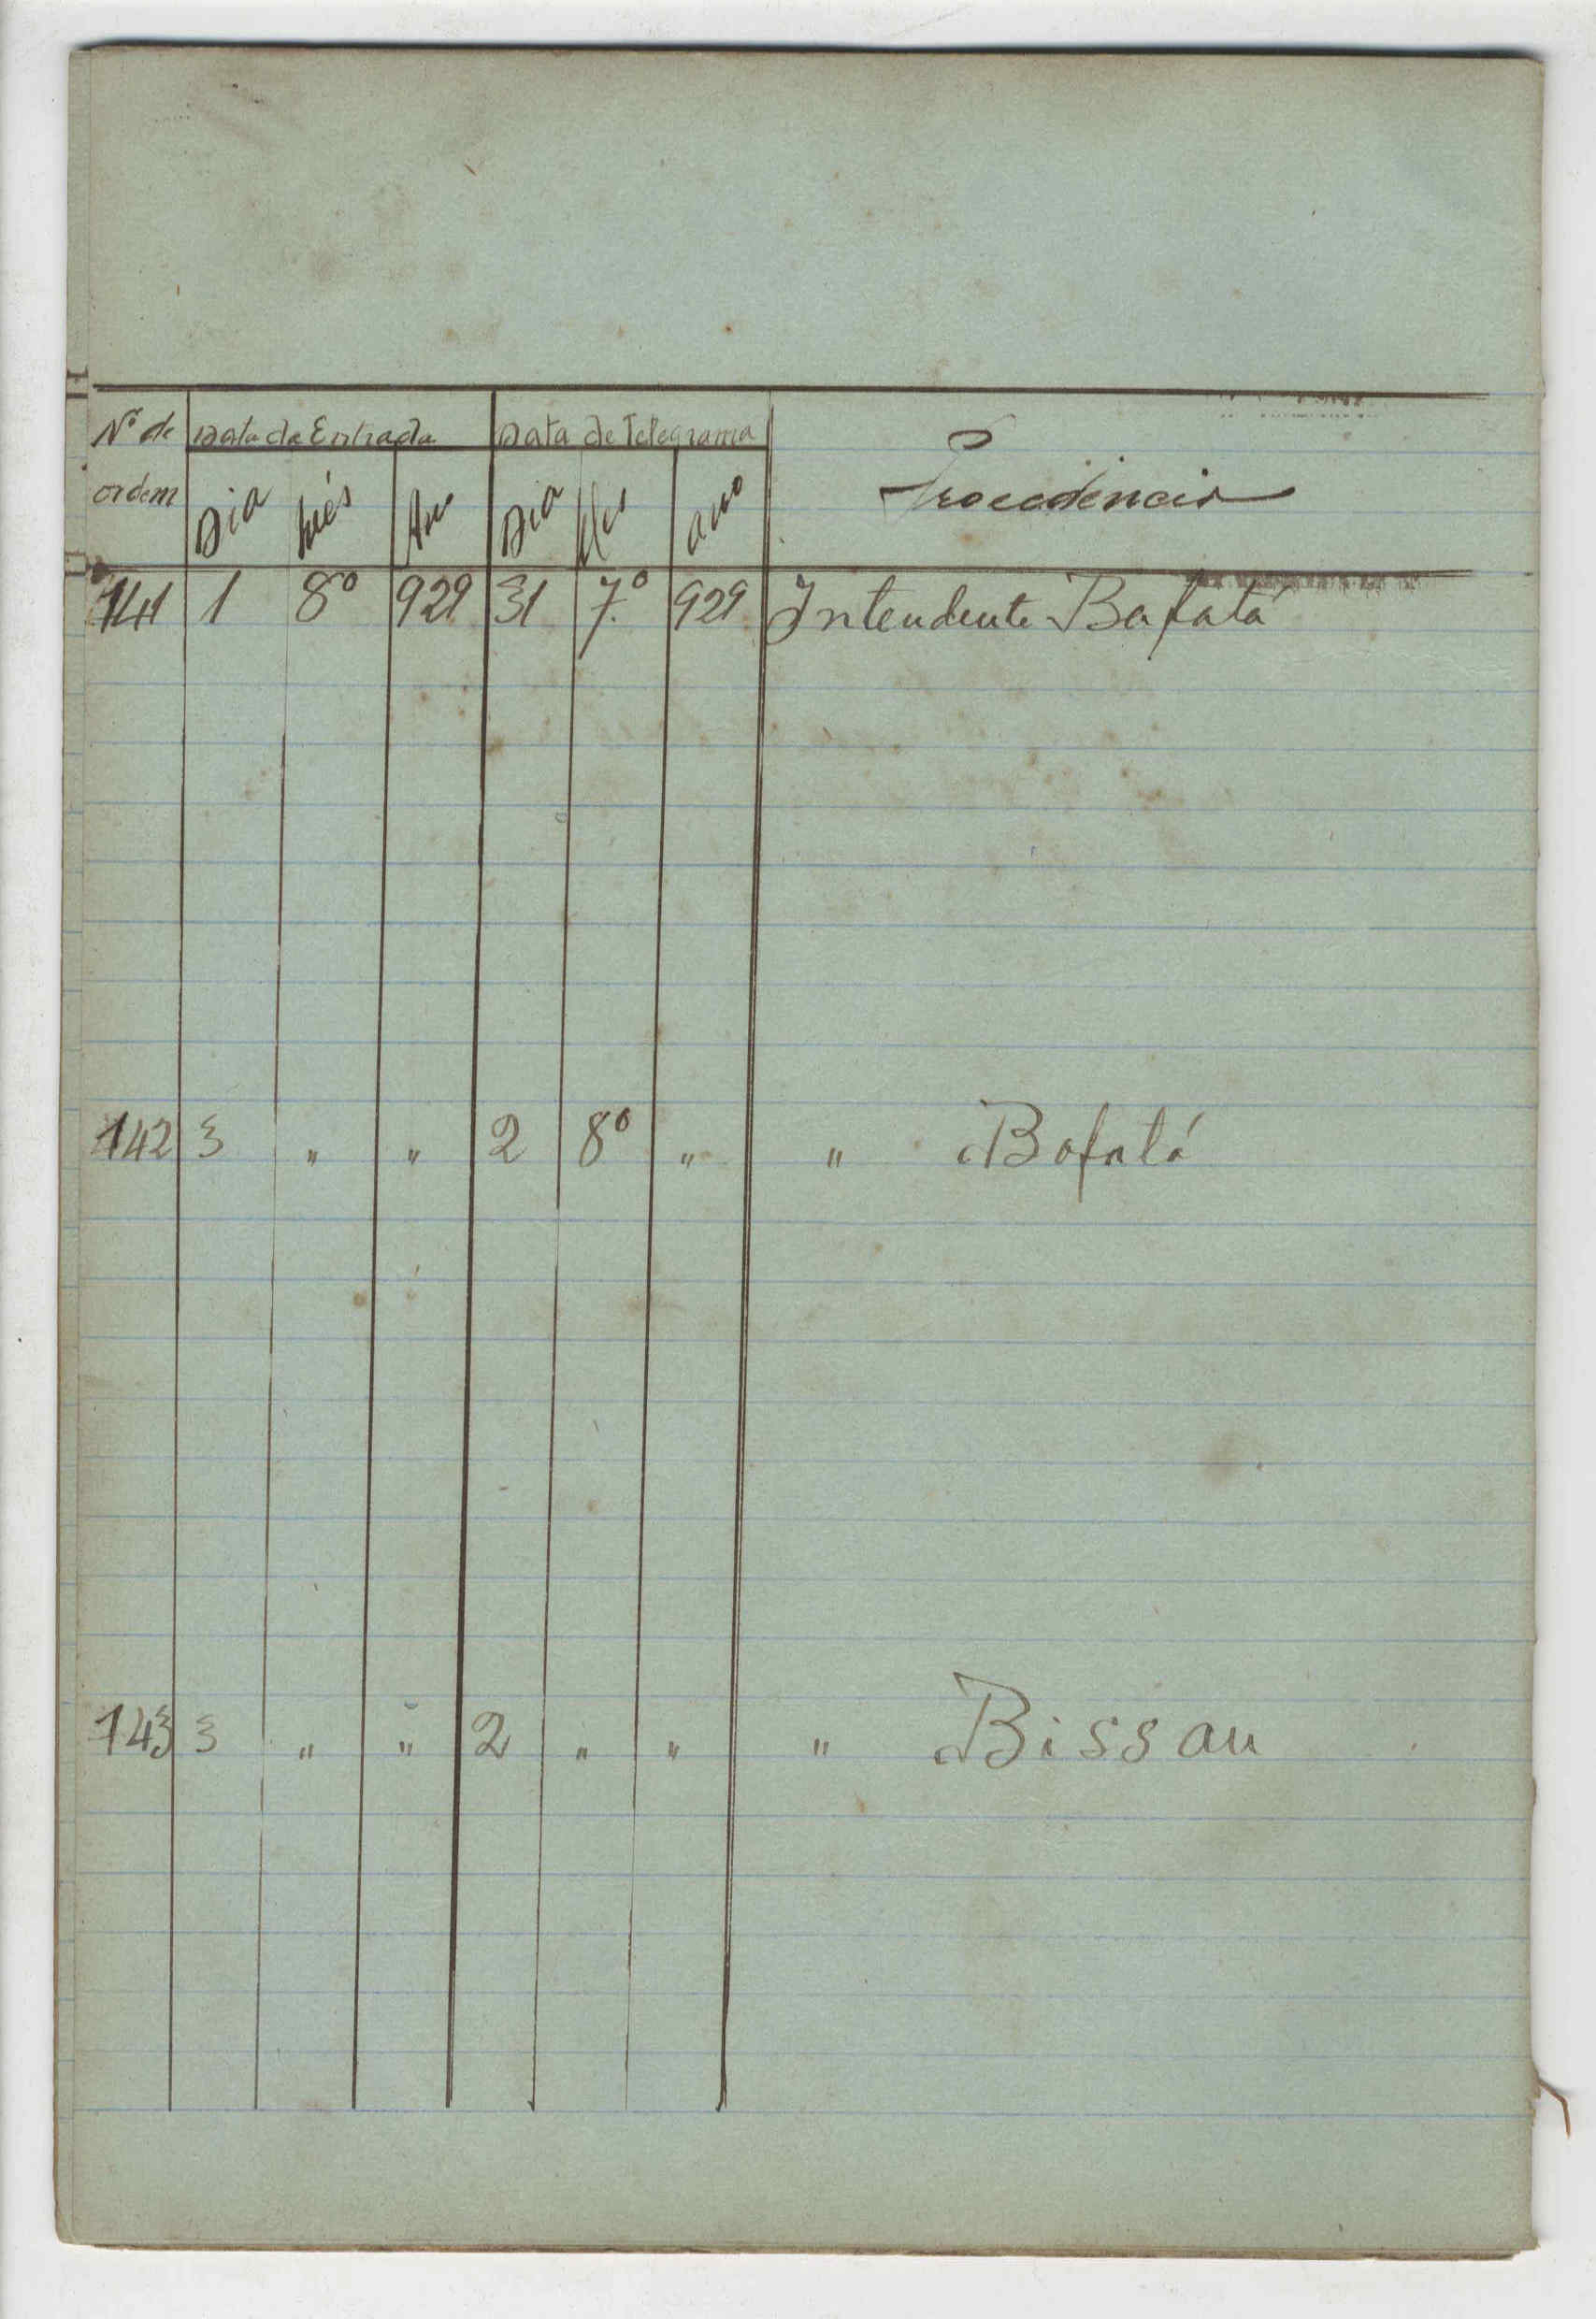 Nº de Data da Entrada Data de Telegrama Procedência
ordem Dia Mês Ano Dia Mes ano
141 1 8º 929 31 7º 929 Intendente Bafatá
142 3 " " 2 8º " " Bafatá
143 3 " " 2 " " " Bissau